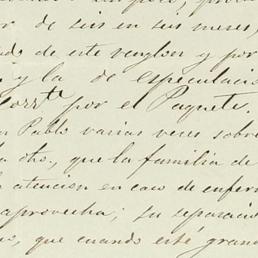 de seis en seis meses,
de este renglon y por
y la de especulacio
Corr.te por el Paquete.
Pablo varias veces sobre
otro, que la familia de
atencion en caso de enfer
aprovecha; su separacio
que cuando esté grand